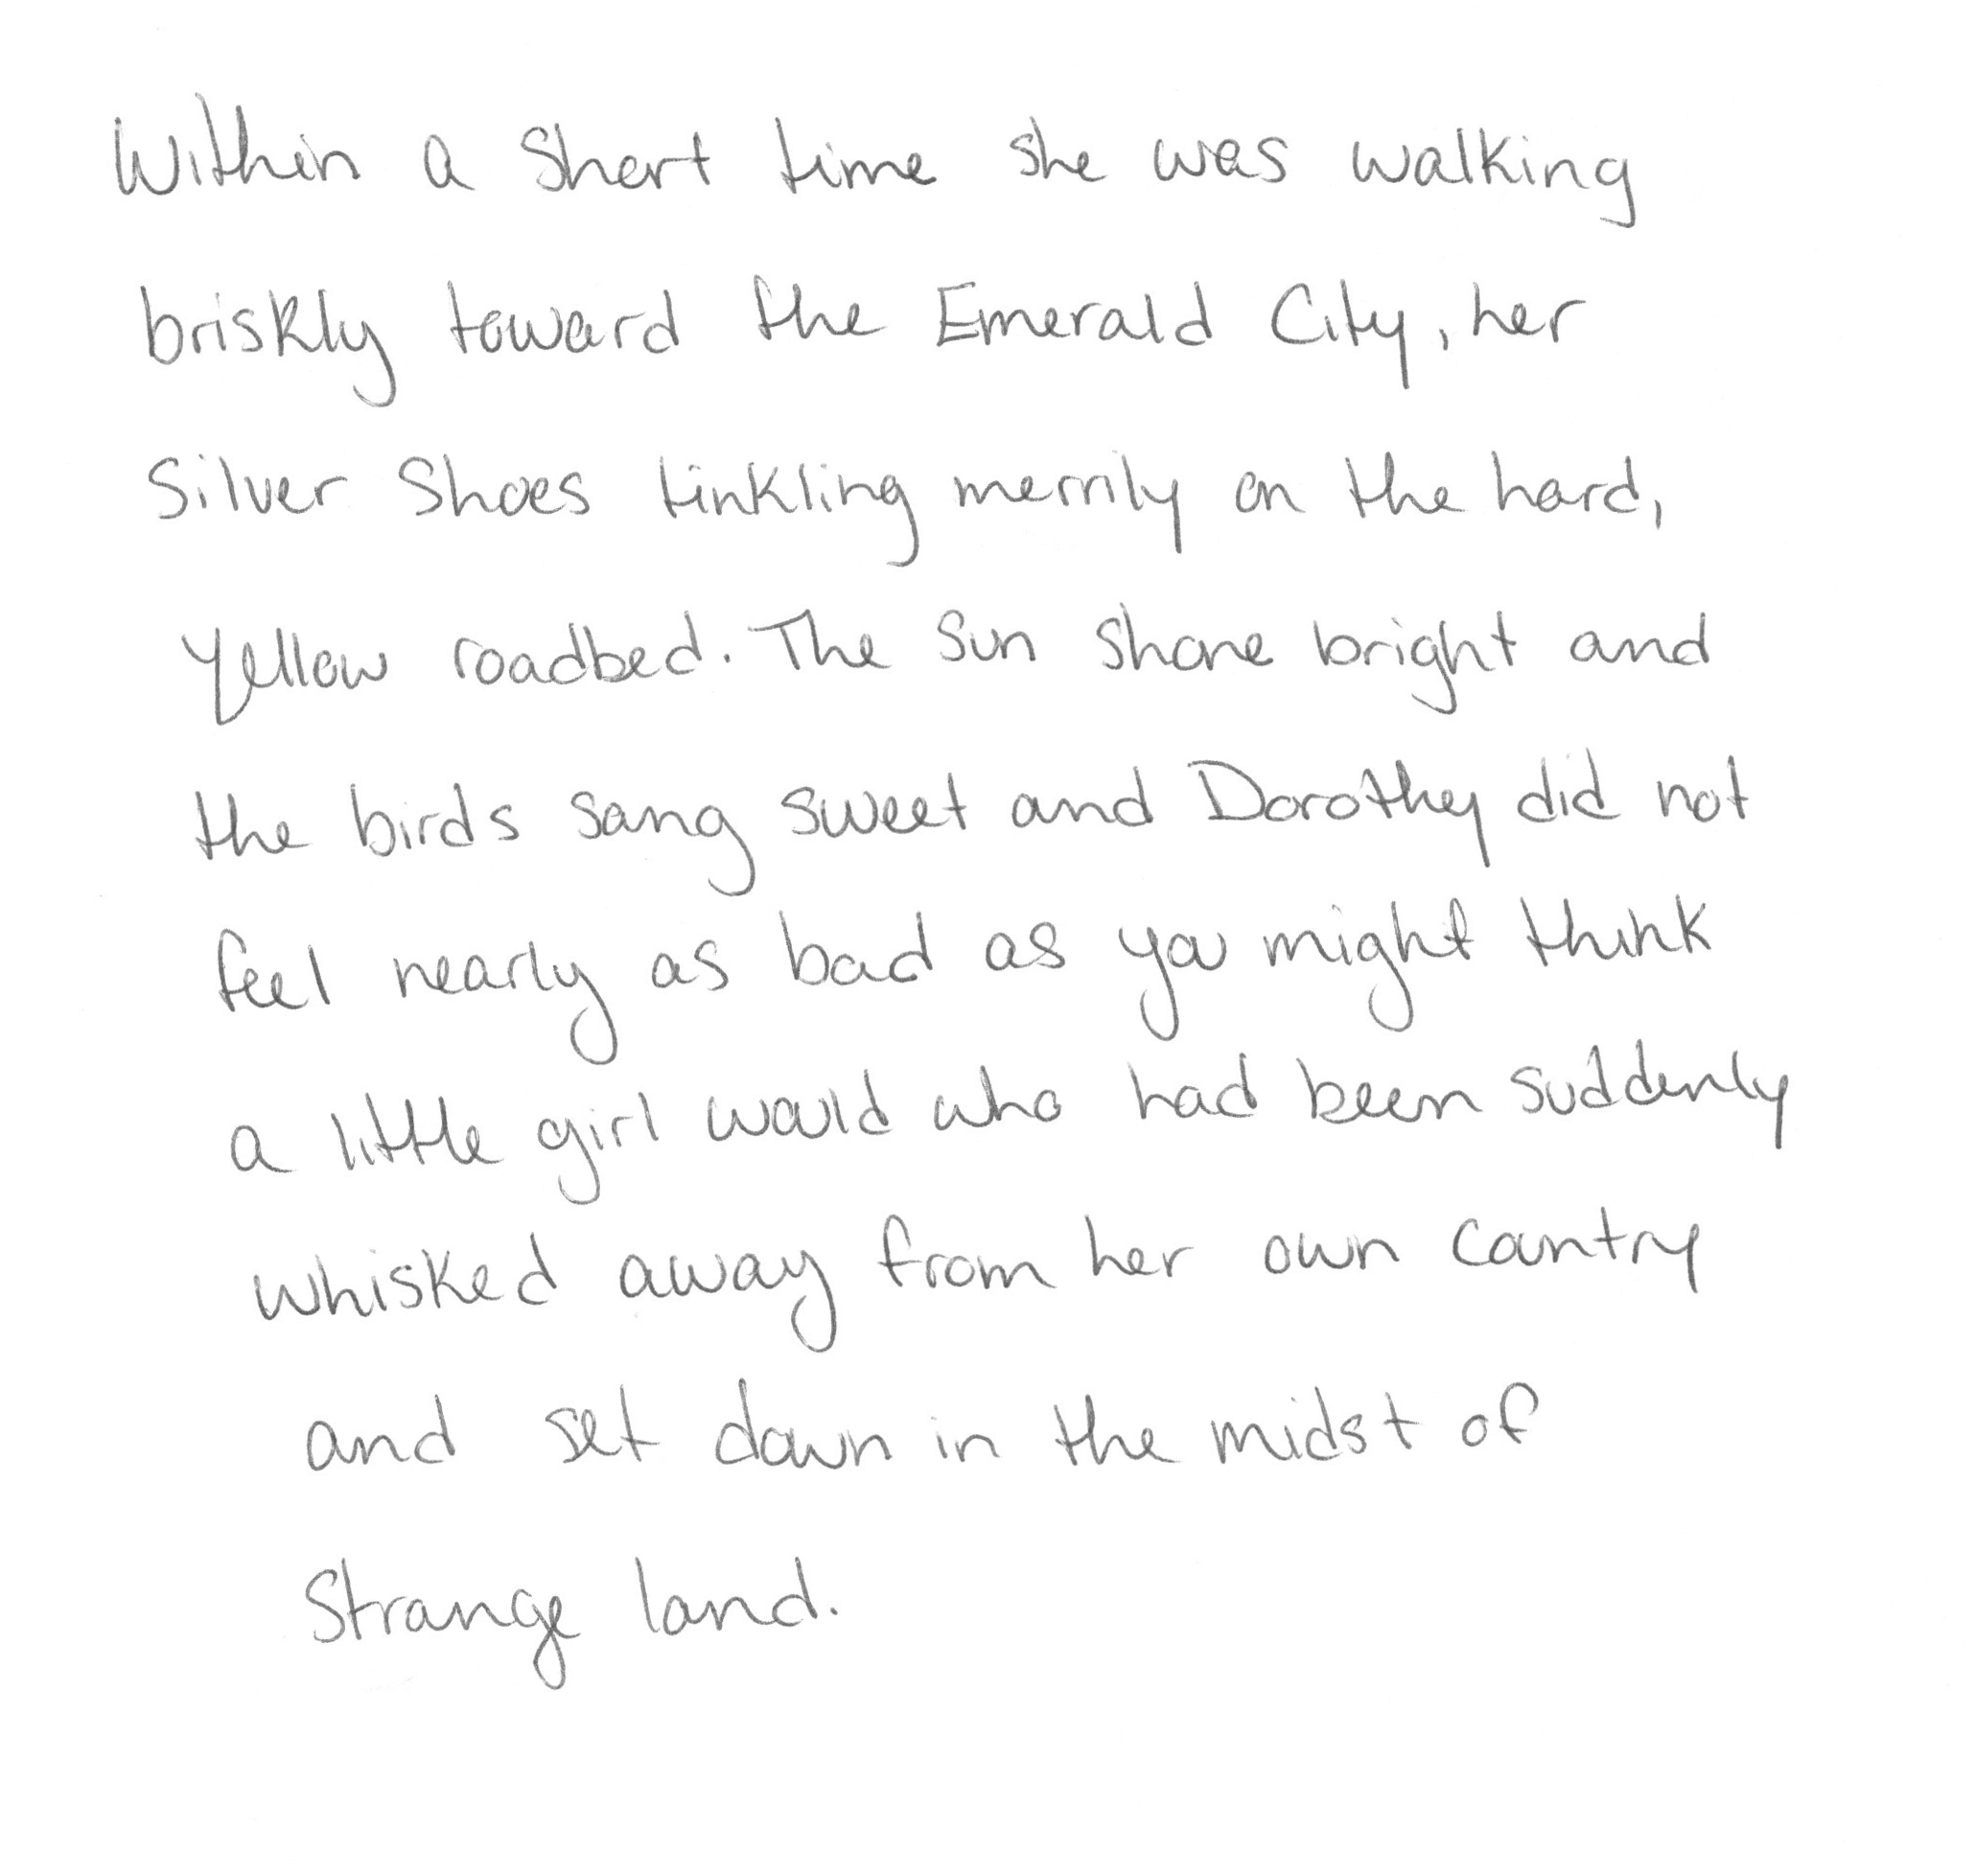 Within a short time she was walking
briskly toward the Emerald City, her
Silver Shoes tinkling merrily on the hard,
yellow roadbed. The sun shone bright and
the birds sang sweet and Dorothy did not
feel nearly as bad as you might think
a little girl would who had been suddenly
whisked away from her own country
and set down in the midst of
strange land.